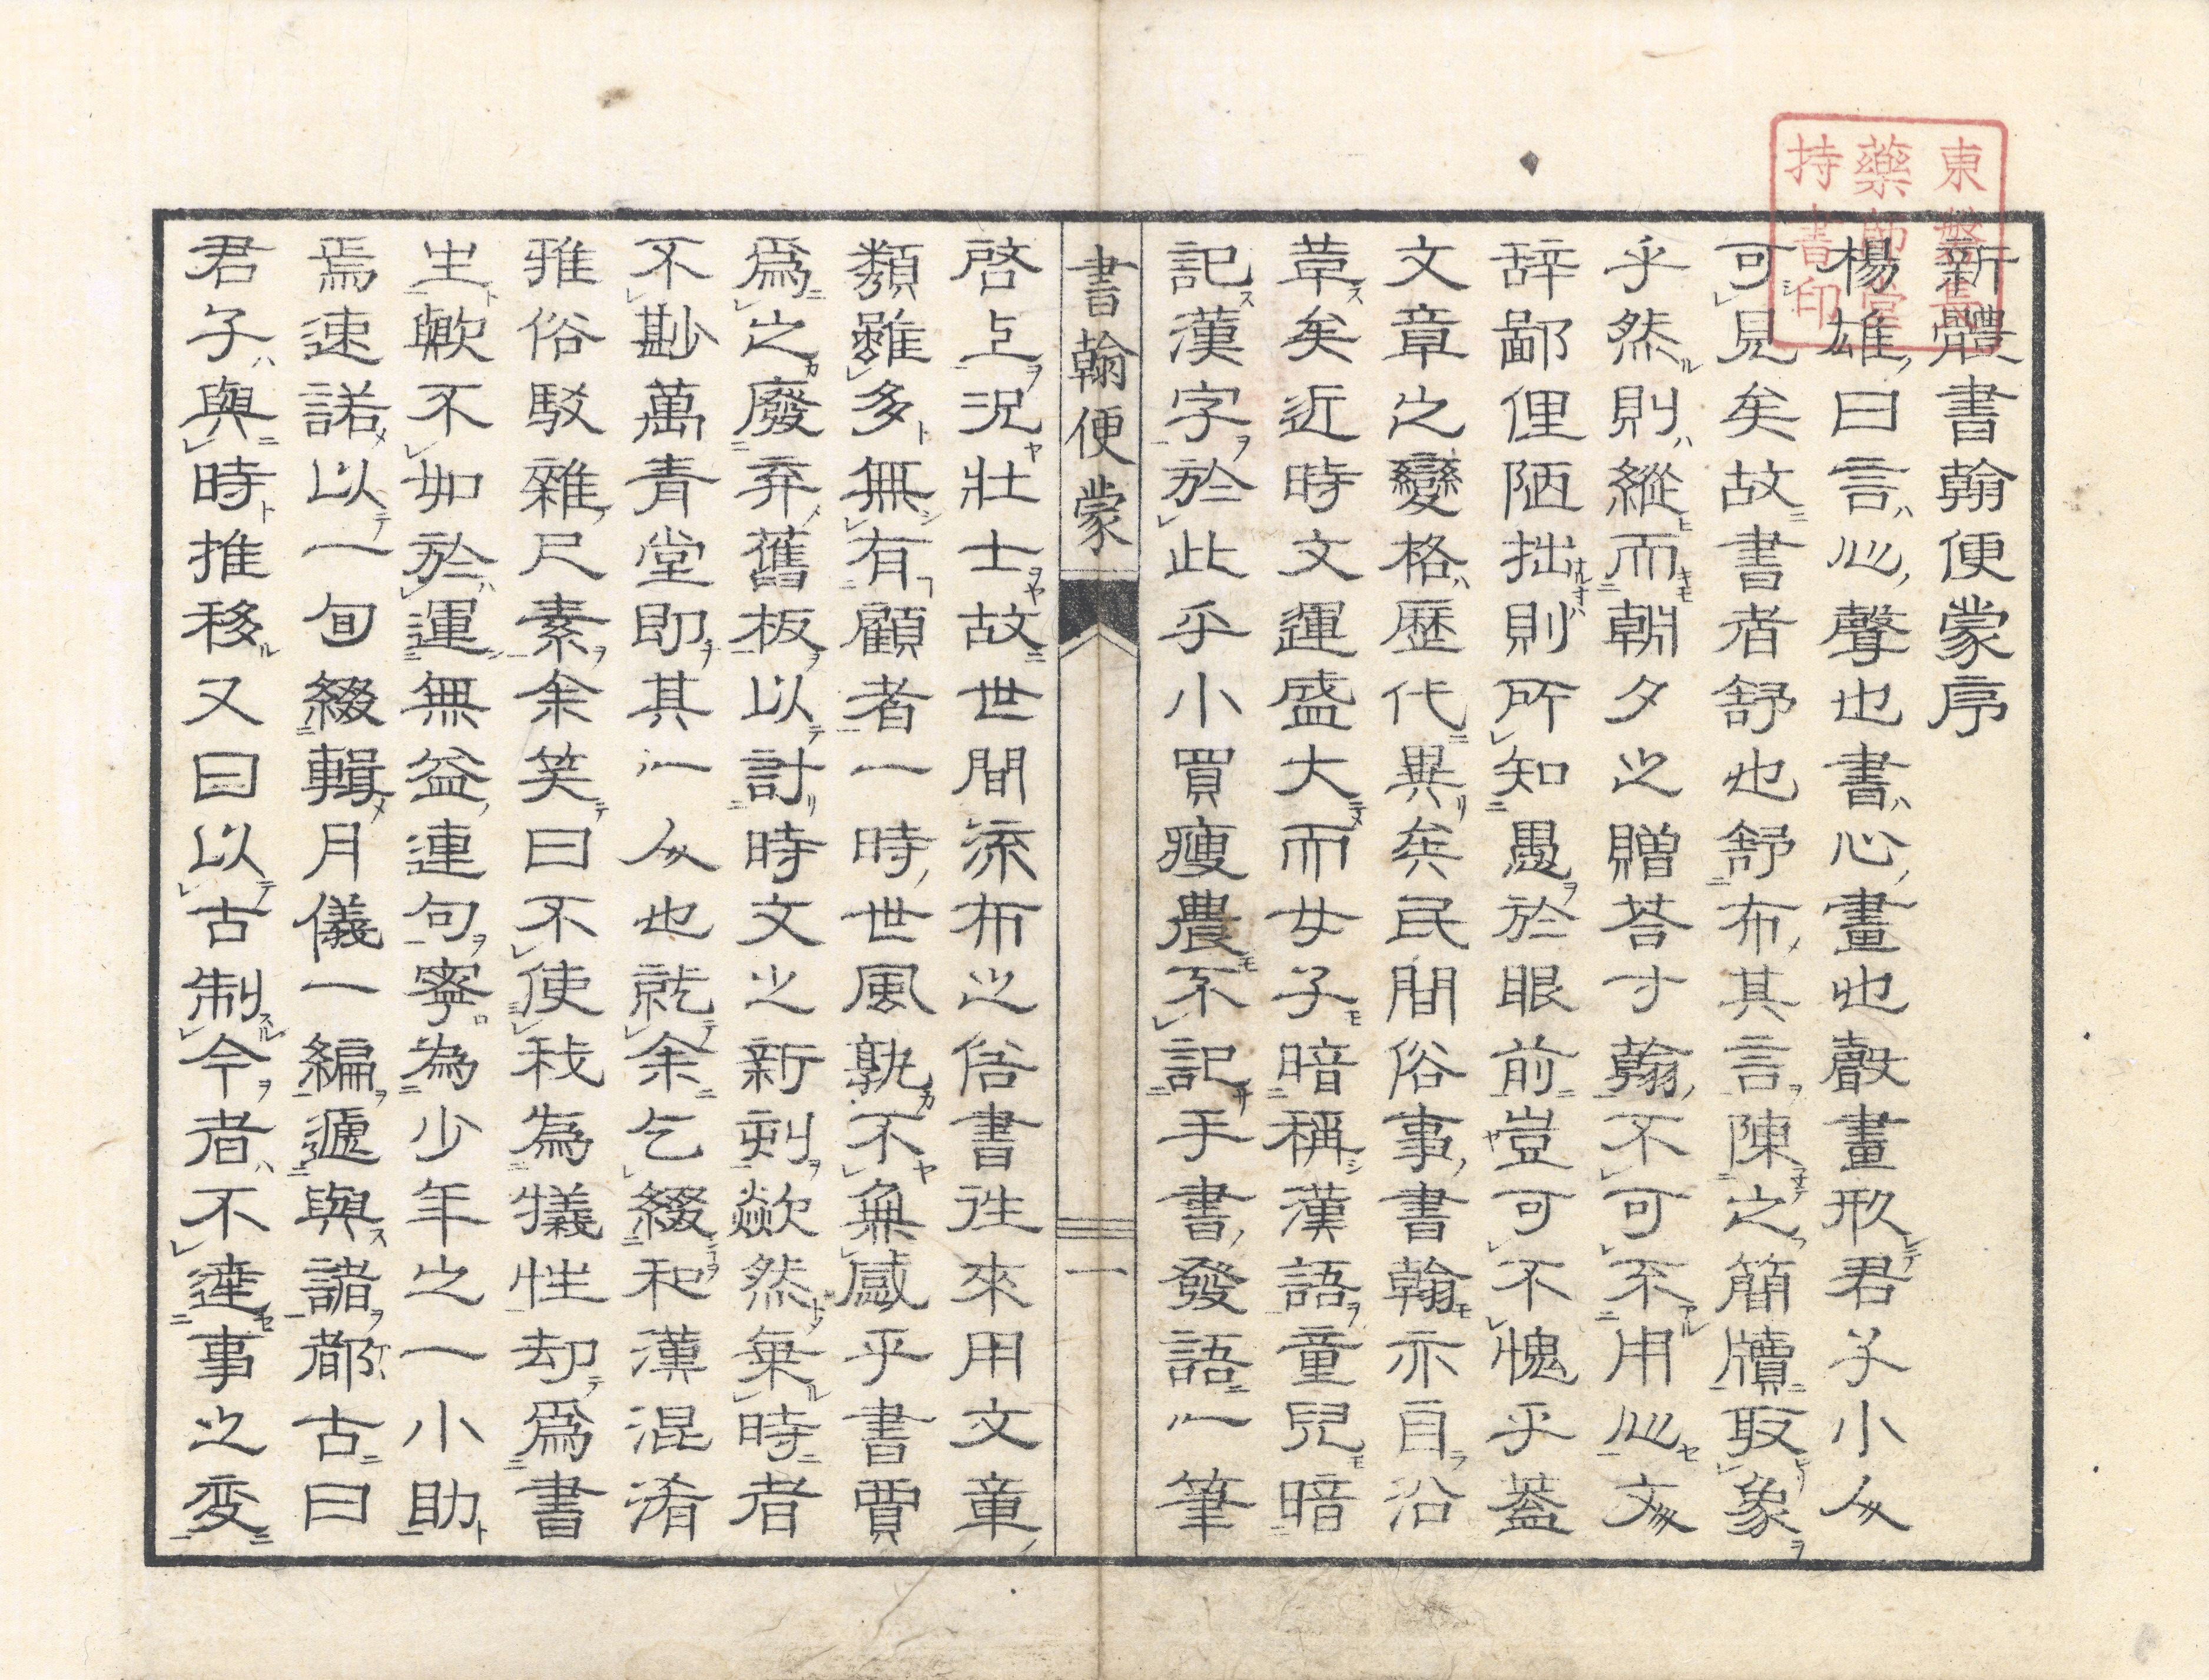 新體書翰便蒙序
楊雄曰言心聲也書心畫也聲畫形君子小人
可見矣故書者舒也舒布其言陳之簡牘取象
乎然則縱而朝夕之贈荅寸翰不可不用心文
辞鄙俚陋拙則所知愚於眼前豈可不愧乎蓋
文章之變格歷代異矣民間俗事書翰亦自沿
革矣近時文運盛大而女子暗稱漢語童兒暗
記漢字於此乎小買瘦農不記手書發語一筆
書翰便蒙 一
啓上況壯士故世間流布之俗書往來用文章
類雖多無有顧者一時世風孰不無感乎書賈
爲之廢弃舊板以計時文之新刻歘然乗時者
不尠萬青堂即其一人也就余乞綴和漢混淆
雅俗駁雜尺素余笑曰不使我為犠牲却爲書
生歟不如於運無益連句寧為少年之一小助
焉速諾以一旬綴輯月儀一編遞與諸都古曰
君子與時推移又曰以古制今者不達事之変
藥師堂
持書印